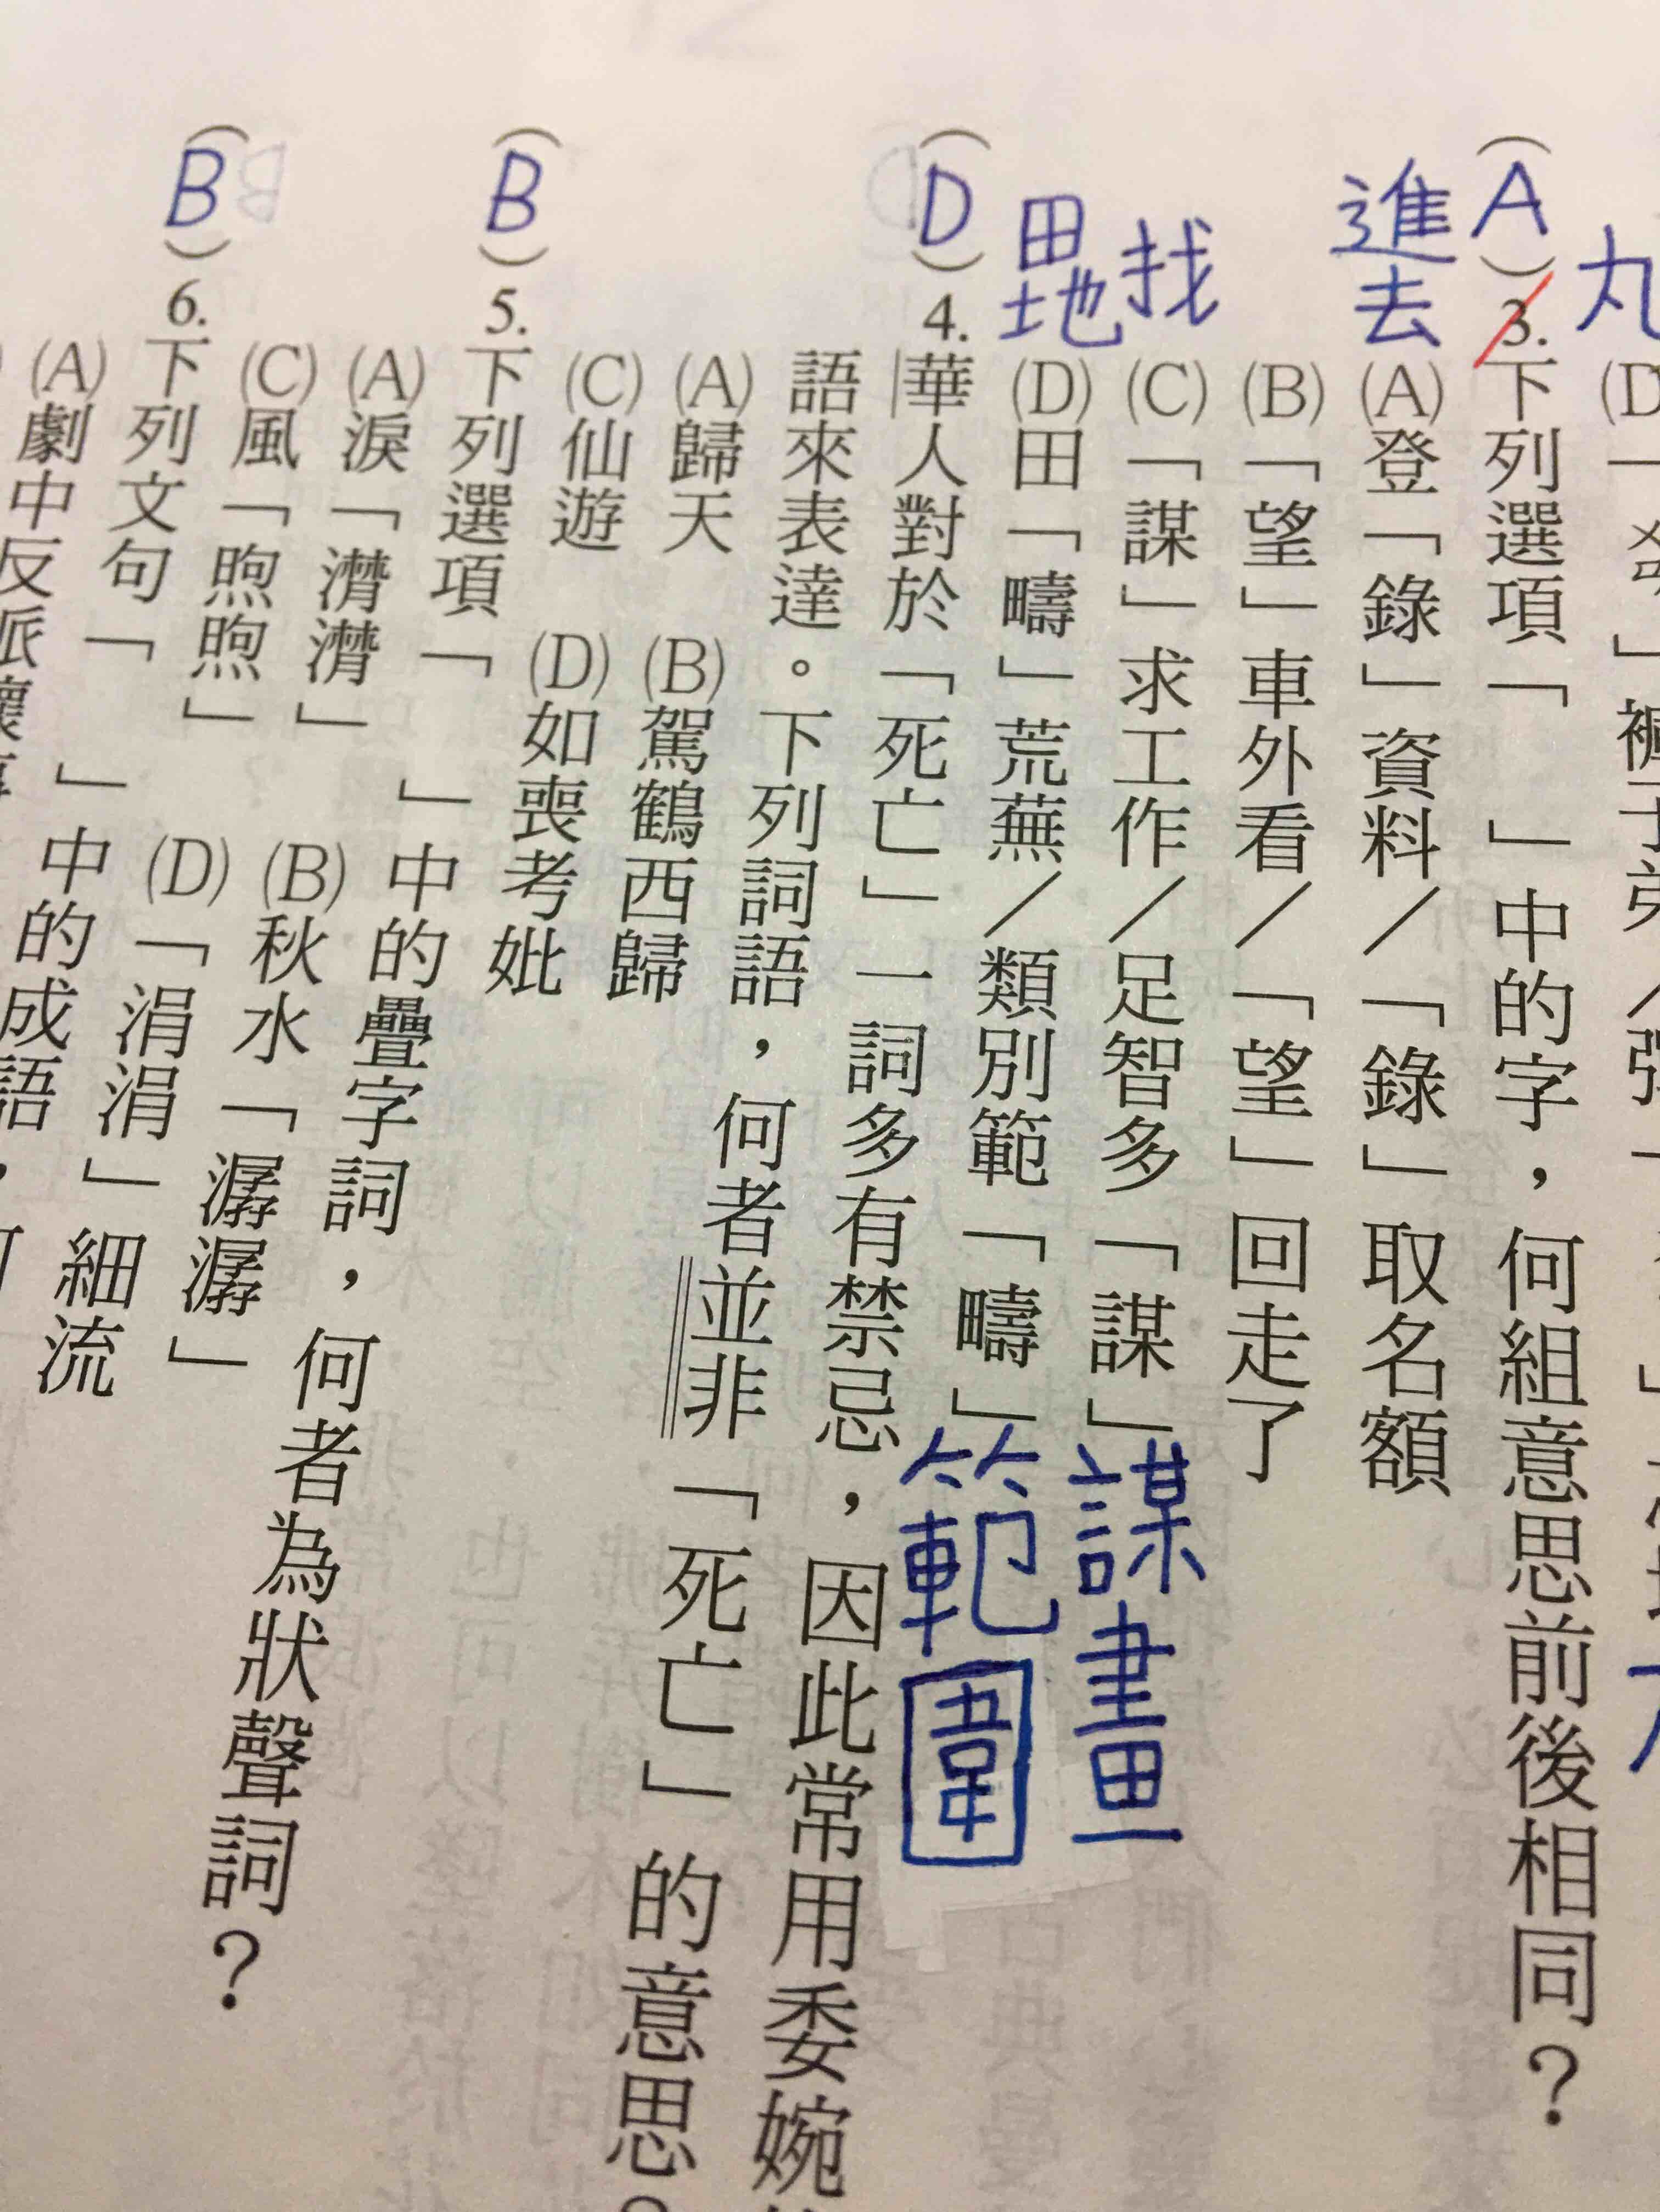 丸
(A) 3. 下列選項「 」中的字，何組意思前後相同？
進去
(A)登「錄」資料／「錄」取名額
(B)「望」車外看／「望」回走了
找
(C)「謀」求工作／足智多「謀」
謀畫
田地
(D)田「疇」荒蕪／類別範「疇」
範圍
(D) 4. 華人對於「死亡」一詞多有禁忌，因此常用委婉
語來表達。下列詞語，何者並非「死亡」的意思？
(A)歸天 (B)駕鶴西歸
(C)仙遊 (D)如喪考妣
(B) 5. 下列選項「 」中的疊字詞，何者為狀聲詞？
(A)淚「潸潸」 (B)秋水「潺潺」
(C)風「煦煦」 (D)「涓涓」細流
(B) 6. 下列文句「 」中的成語，
(A)劇中反派